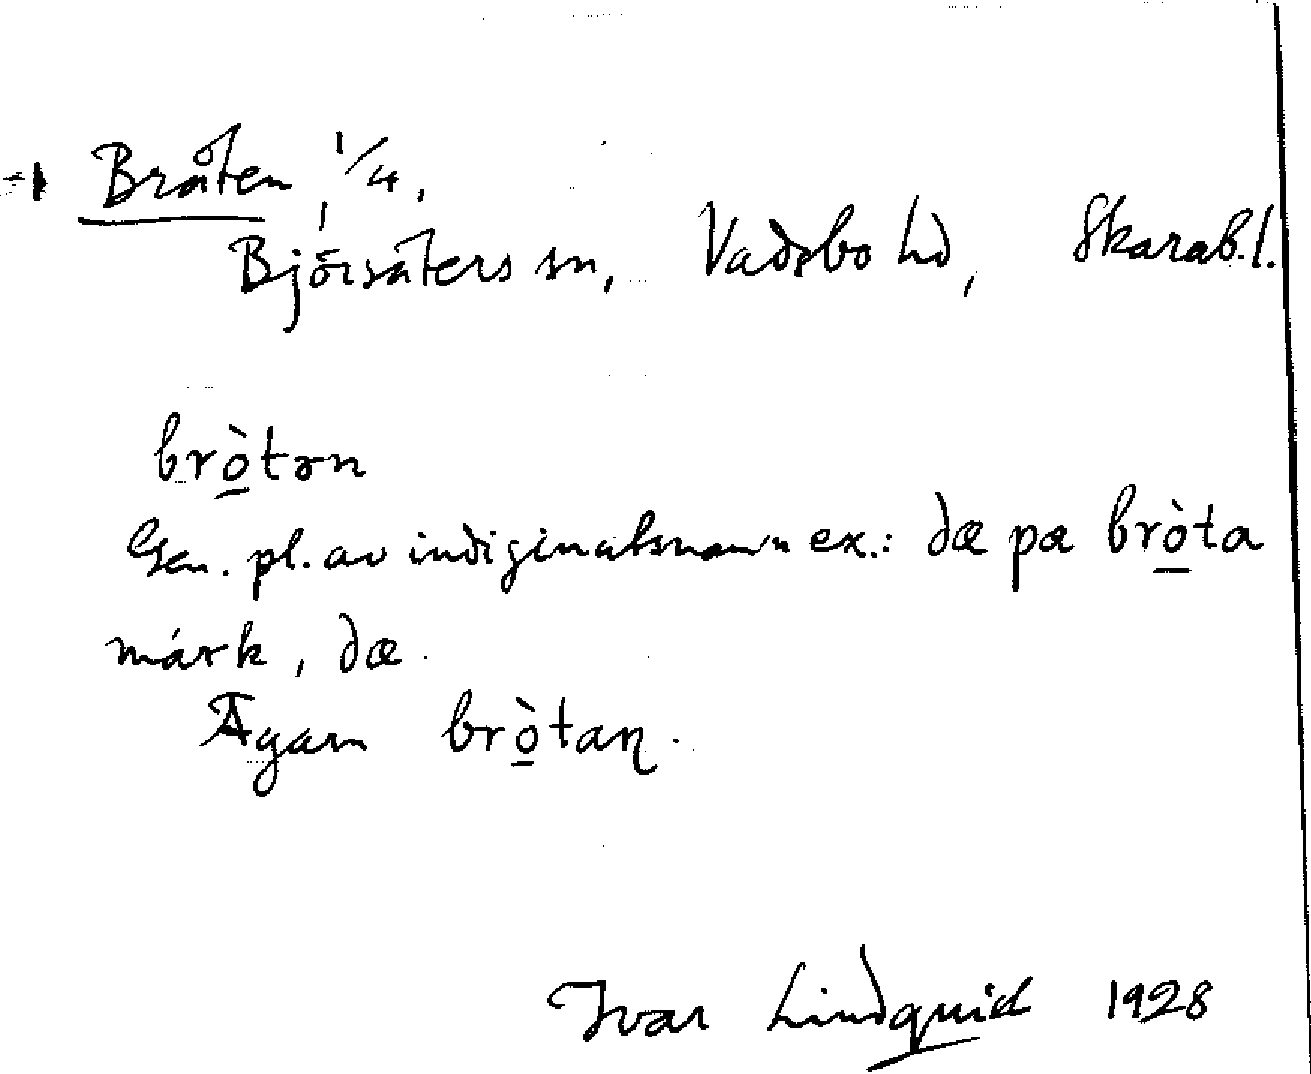 Bråten, 1/4,
Björsäters sn, Vadsbo hd, Skarab.l.
brò̱tən
Gen. pl. av indiginatsnamn ex.: dæ pa brò̱ta
márk, dæ.
Ägarn brò̱taɳ.
Ivar Lindquist 1928